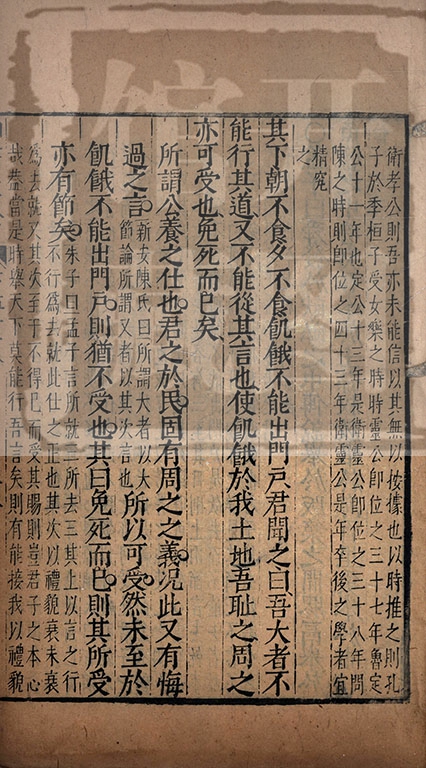 衛孝公則吾亦未能信以其無以按據也以時推之則孔
子於季桓子受女樂之時時靈公即位之三十七年魯定
公十一年也定公十三年是衛靈公即位之三十八年問
陳之時則即位之四十三年衛靈公是年卒後之學者宜
精究
之
其下朝不食夕不食飢餓不能出門戶君聞之曰吾大者不
能行其道又不能從其言也使飢餓於我土地吾耻之周之
亦可受也免死而已矣
所謂公養之仕也君之於民固有周之之義况此又有悔
過之言新安陳氏曰所謂大者以大
節論所謂又者以其次言也所以可受然未至於
飢餓不能出門戶則猶不受也其曰免死而已則其所受
亦有節矣朱子曰孟子言所就三所去三其上以言之行
不行爲去就此仕之正也其次以禮貌衰未衰
爲去就又其次至于不得已而受其賜則豈君子之本心
哉蓋當是時舉天下莫能行吾言矣則有能接我以禮貌